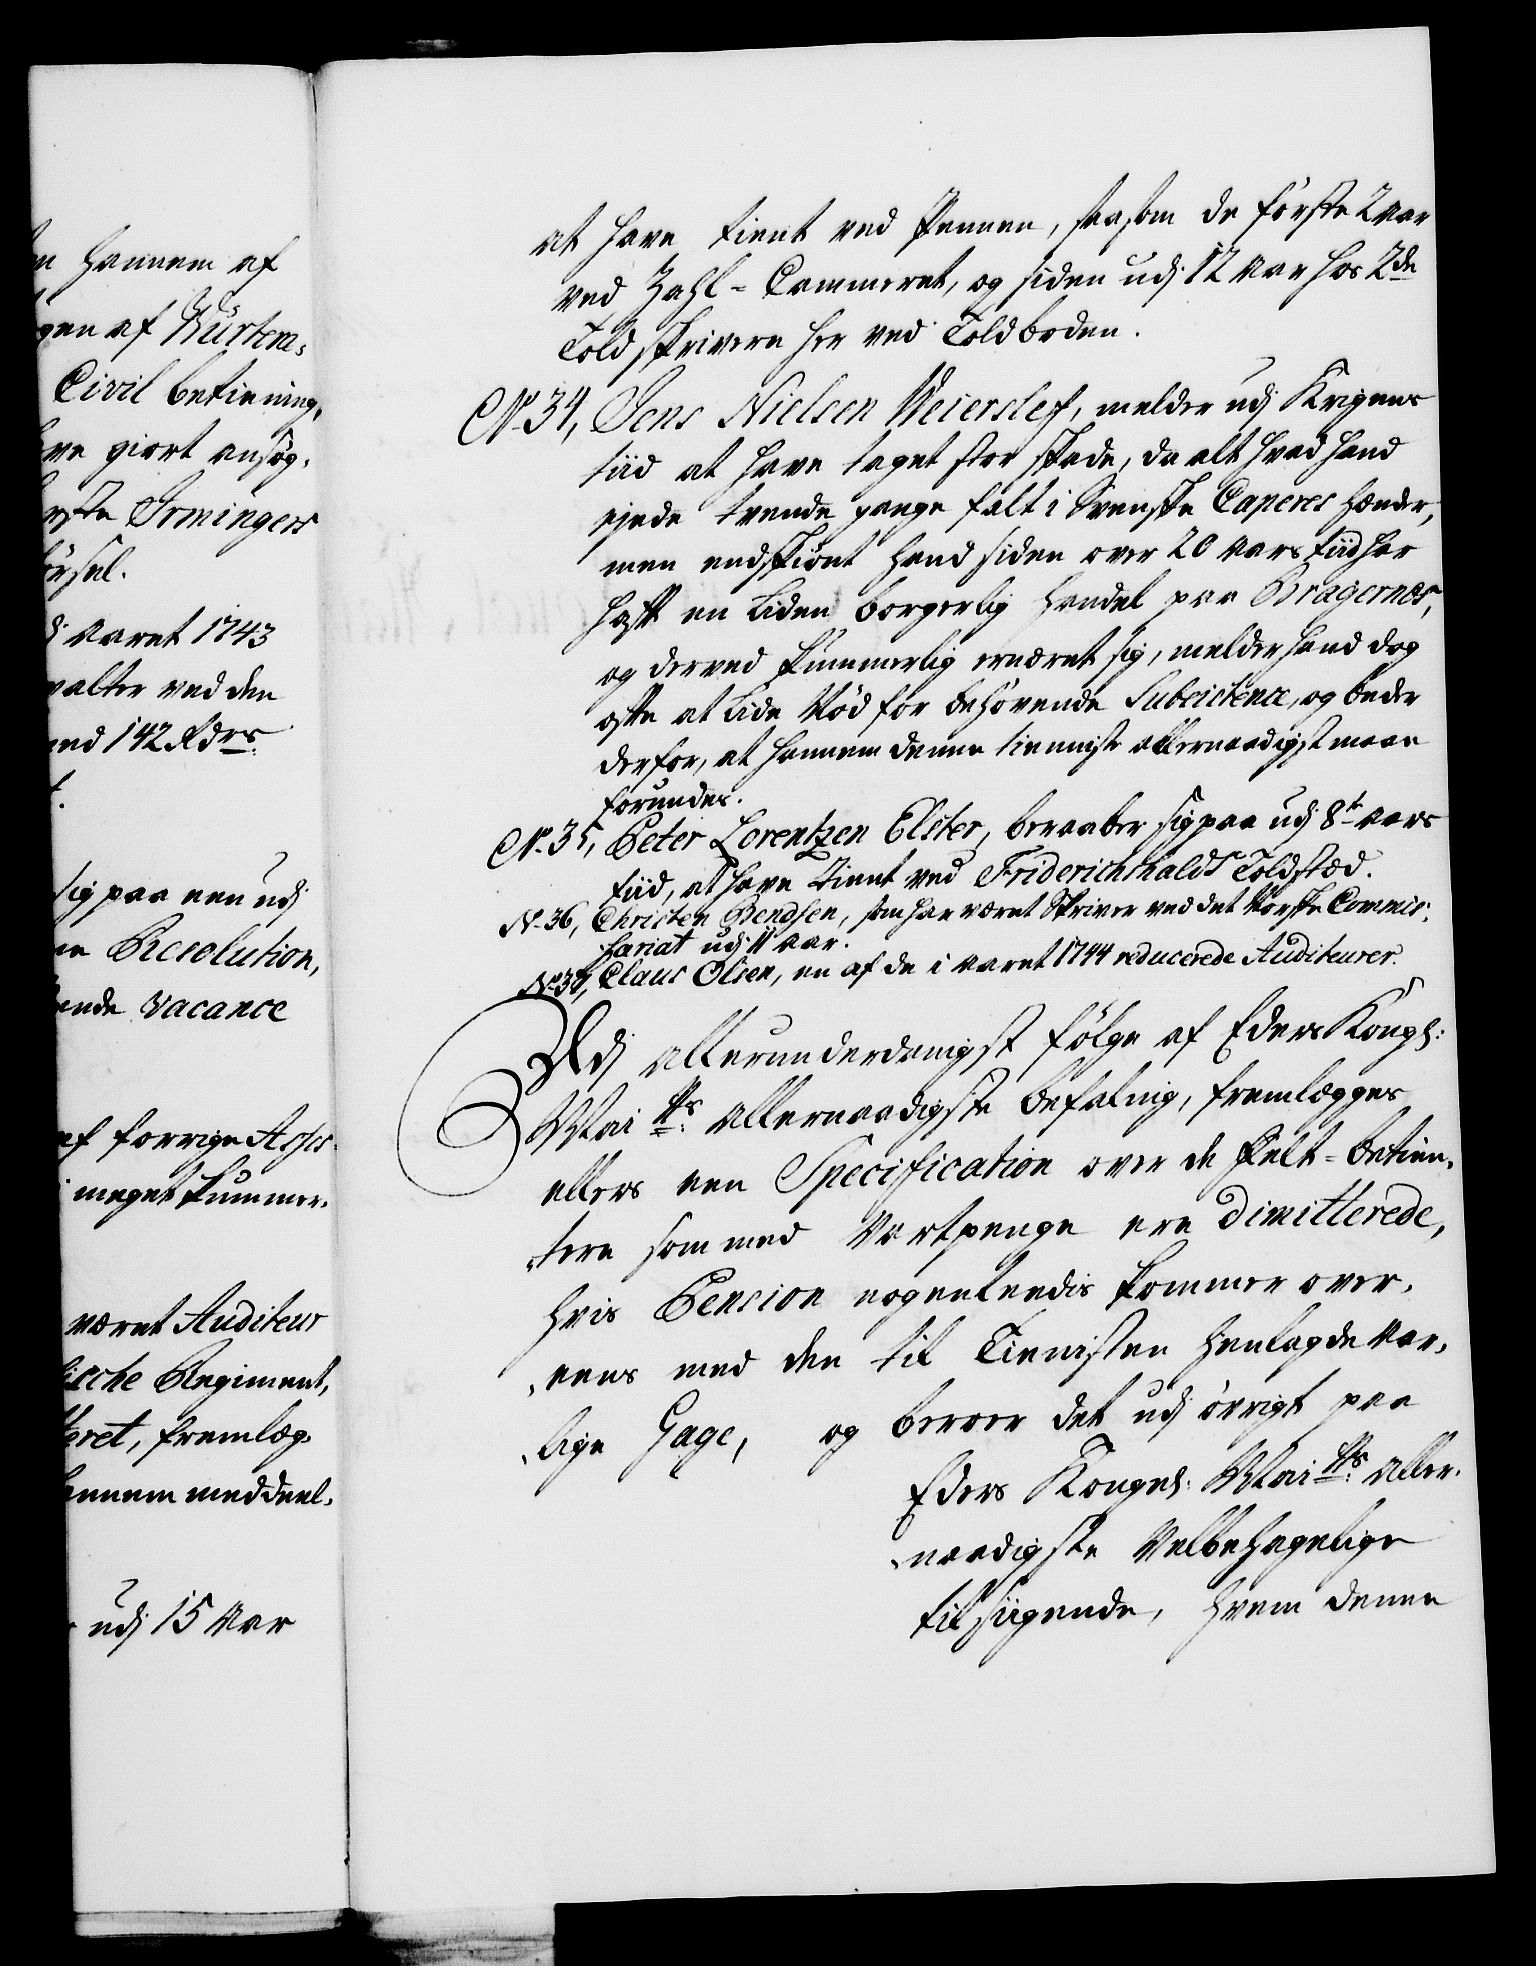 hannem af
gen af Würtem,
Civil betiening,
giort ansøg,
Irmingers
aaret 1743
valter ved den
142 Rdrs
sig paa een udj
Resolution,
vacance
af forrige Asses
meget kummer,
været Auditeur
Regiment,
fremlæg,
hannem meddeel,
udj 15 Aar
at have tient ved Pennen, saasom de første 2 aar
ved Zahl-Cammeret, og siden udj 12 aar hos 2de
Toldskrivere her ved Toldboden.
No. 34, Jens Nielsen Weierslef, melder udj Krigens
tiid at have taget stor skade, da alt hvad hand
ejede trende gange falt i Svenske Caperes hænder,
men endskiønt hand siden over 20 aars tiid har
haft en liden borgerlig handel paa Bragernes,
og derved kummerlig ernæret sig, melder hand dog
ofte at lide Nød for behøvende Subsistence, og beder
derfor, at hannem denne tienniste allernaadigst maae
forundes.
No. 35, Peter Lorentzen Elster, beraaber sig paa udj 8te aars
tiid, at have tient ved Friderichshalds Toldsted.
No. 36, Christen Bendsen, som har været Skriver ved det Norske Commis,
sariat udj 11 aar.
No. 37, Claus Olsen, en af de i aaret 1744 reducerede Auditeurer.
Udj allerunderdanigst følge af Eders Kongl:
Mai.ts allernaadigste befaling, fremlægges
ellers een Specification over de Felt-betien,
,tere som med Vartpenge ere dimitterede,
hvis Pension nogenlunde kommer over,
,eens med den til Tienisten henlagde aar,
,lige Gage, og beroer det udj øvrigt paa
Eders Kongel: Mai.ts aller,
,naadigste Velbehagelige
tilsigende, hvem denne